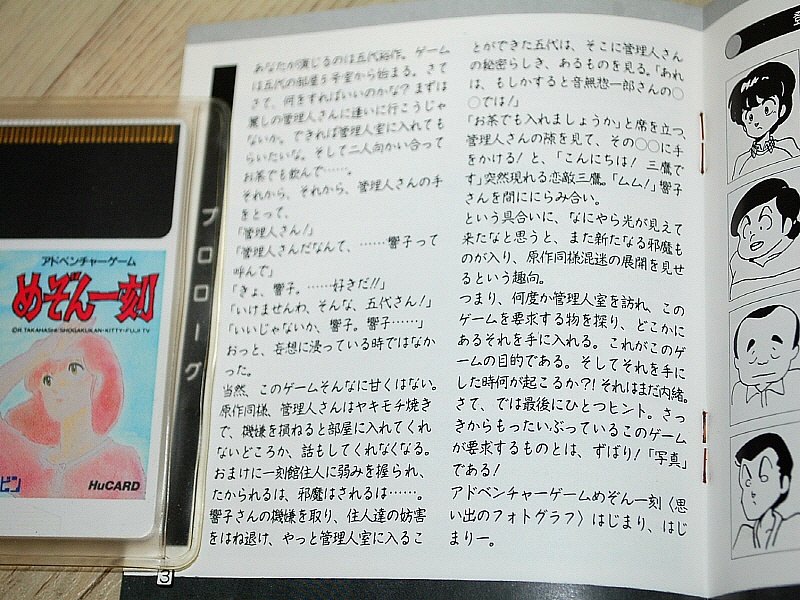 アドベンチャーゲーム
めぞん一刻
©R.TAKAHASHI/SHOGAKUKAN・KITTY・FUJI TV
HuCARD
プロローグ
あなたが演じるのは五代裕作。ゲーム
は五代の部屋5号室から始まる。さて
さて、何をすればいいのかな？まずは
麗しの管理人さんに逢いに行こうじゃ
ないか。できれば管理人室に入れても
らいたいな。そして二人向かい合って
お茶でも飲んで……。
それから、それから、管理人さんの手
をとって、
「管理人さん！」
「管理人さんだなんて、……響子って
呼んで」
「きょ、響子。……好きだ!!」
「いけませんわ、そんな、五代さん！」
「いいじゃないか、響子。響子……」
おっと、妄想に浸っている時ではなか
った。
当然、このゲームそんなに甘くはない。
原作同様、管理人さんはヤキモチ焼き
で、機嫌を損ねると部屋に入れてくれ
ないどころか、話もしてくれなくなる。
おまけに一刻館住人に弱みを握られ、
たかられるは、邪魔はされるは……。
響子さんの機嫌を取り、住人達の妨害
をはね退け、やっと管理人室に入るこ
とができた五代は、そこに管理人さん
の秘密らしき、あるものを見る。「あれ
は、もしかすると音無惣一郎さんの○
○では！」
「お茶でも入れましょうか」と席を立つ、
管理人さんの隙を見て、その○○に手
をかける！と、「こんにちは！ 三鷹で
す」突然現れる恋敵三鷹。「ムム！」響子
さんを間ににらみ合い。
という具合いに、なにやら光が見えて
来たなと思うと、また新たなる邪魔も
のが入り、原作同様混迷の展開を見せ
るという趣向。
つまり、何度か管理人室を訪れ、この
ゲームを要求する物を探り、どこかに
あるそれを手に入れる。これがこのゲ
ームの目的である。そしてそれを手に
した時何が起こるか?!それはまだ内緒。
さて、では最後にひとつヒント。さっ
きからもったいぶっているこのゲーム
が要求するものとは、ずばり！「写真」
である！
アドベンチャーゲームめぞん一刻〈思
い出のフォトグラフ〉はじまり、はじ
まりー。
3